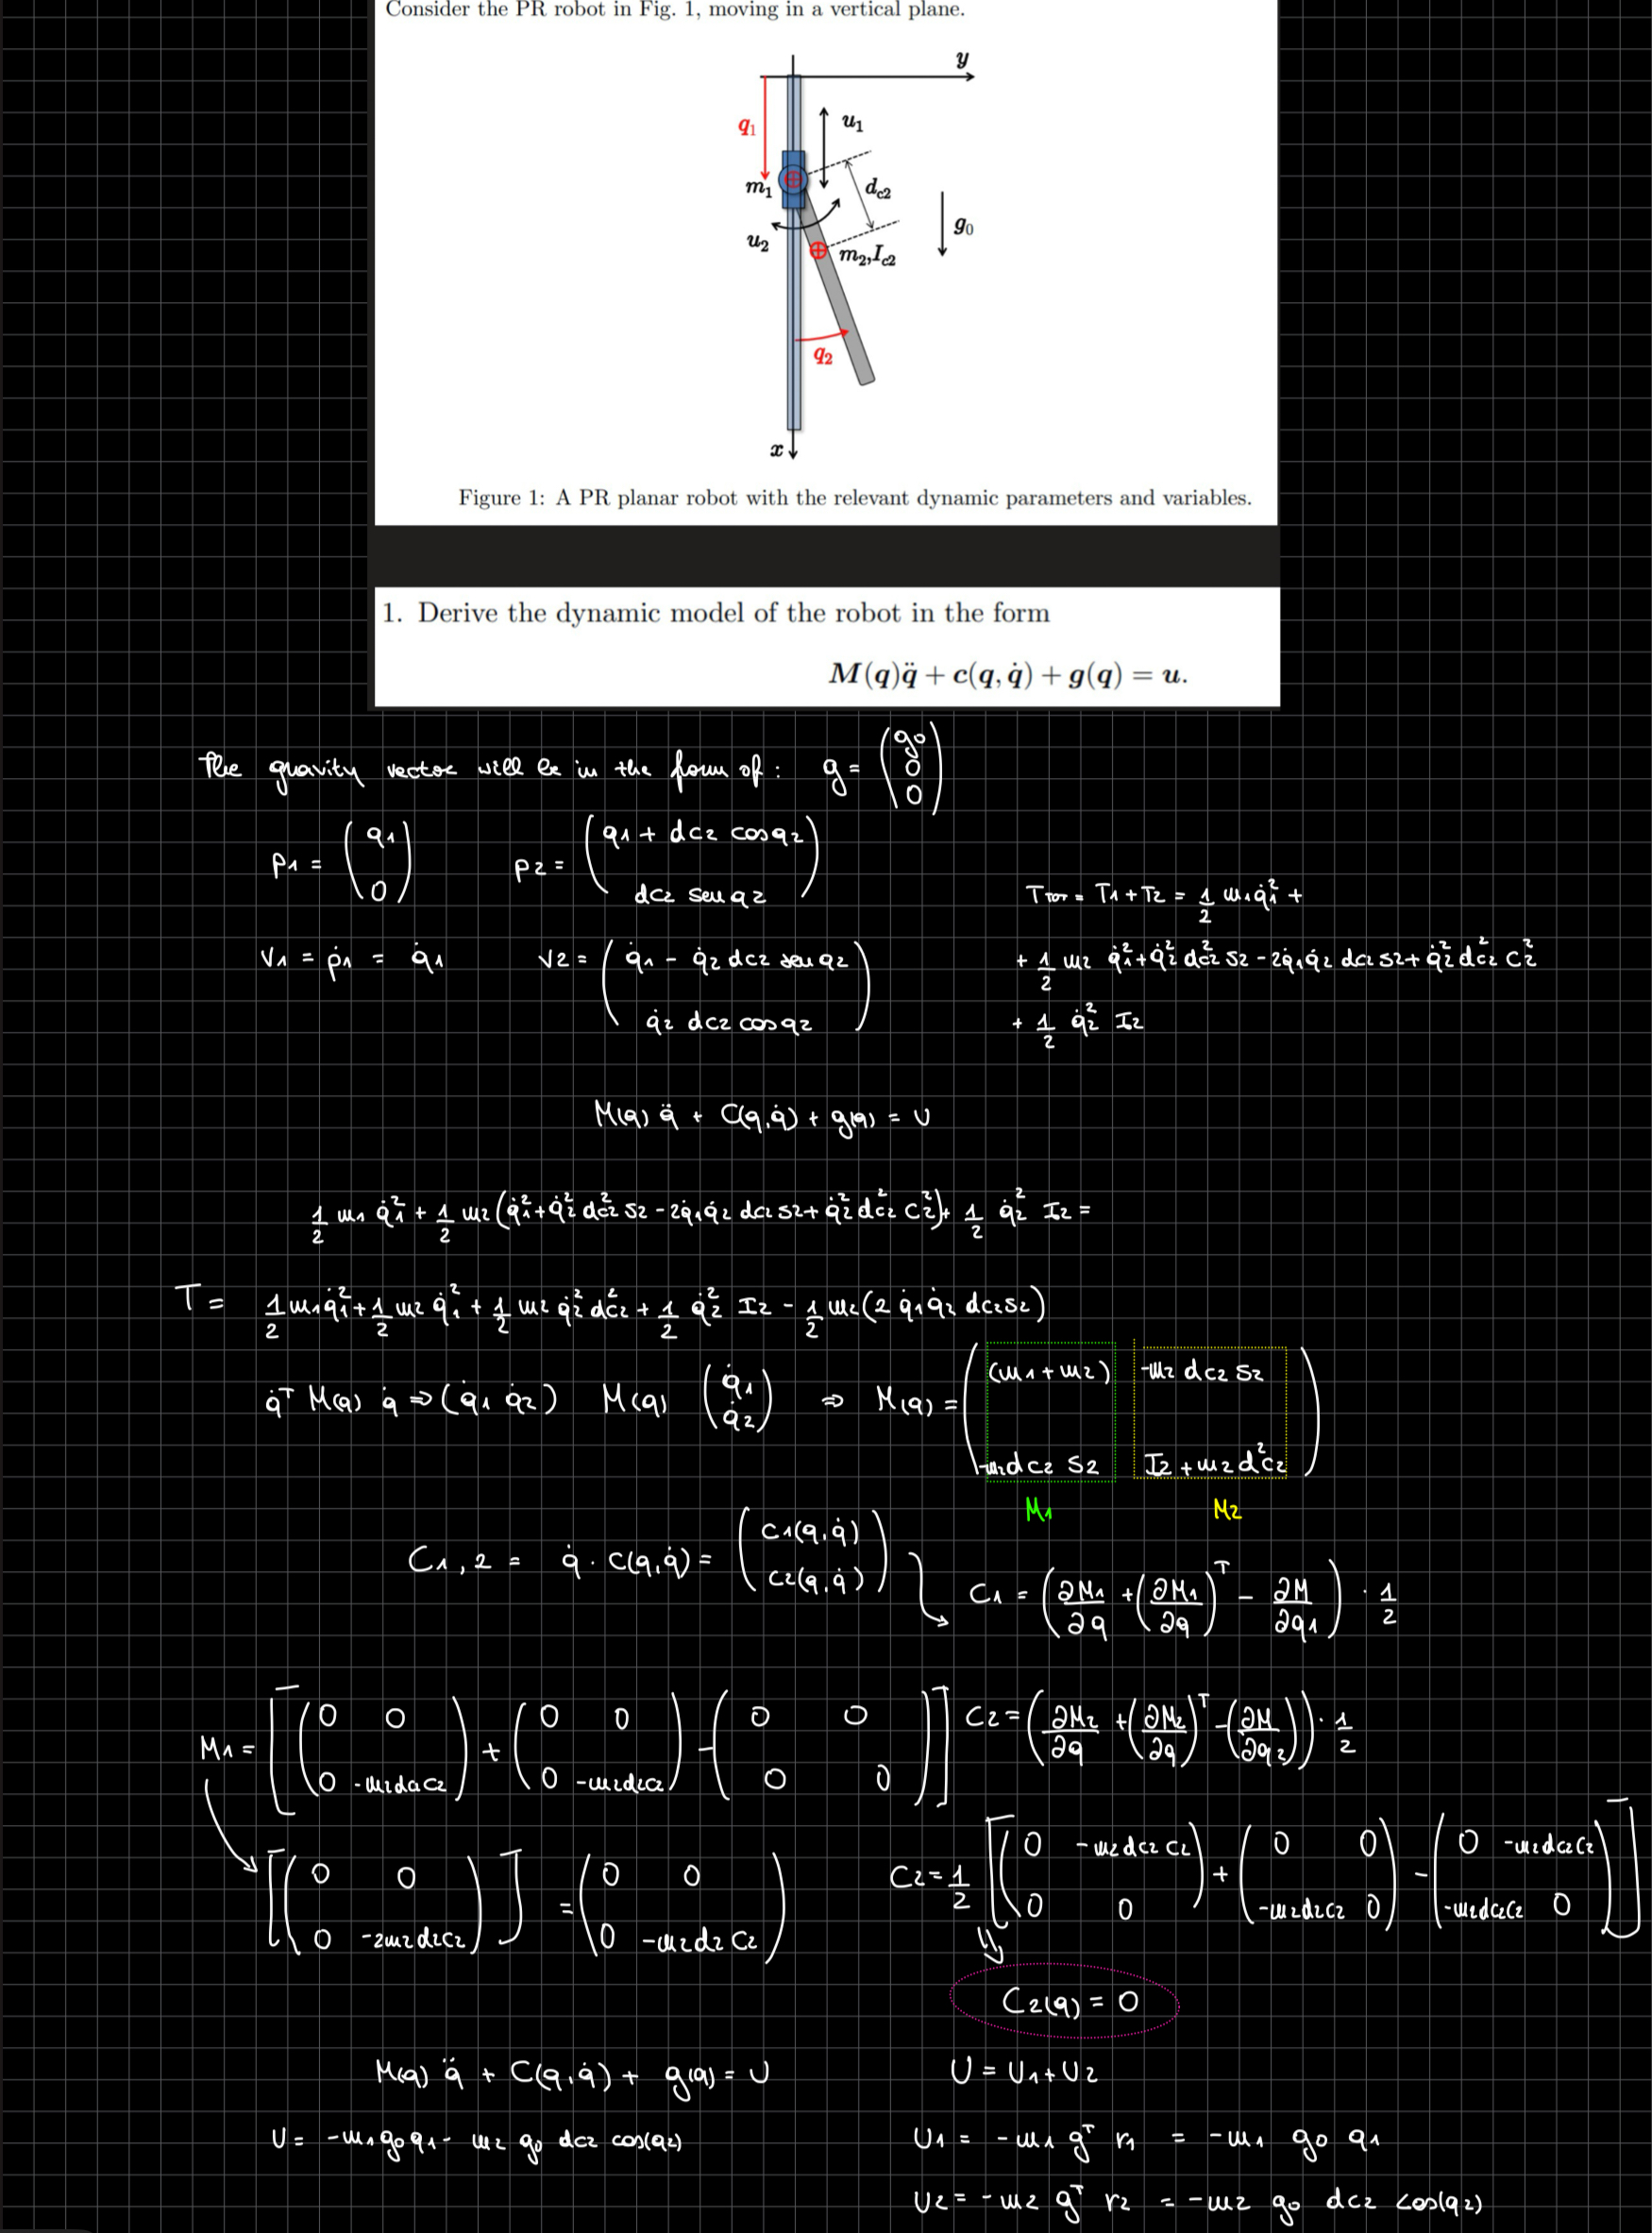 Consider the PR robot in Fig. 1, moving in a vertical plane.
y
q₁
u₁
m₁
d_c2
g₀
u₂
m₂,I_c2
q₂
x
Figure 1: A PR planar robot with the relevant dynamic parameters and variables.
1. Derive the dynamic model of the robot in the form
M(q)q̈ + c(q, q̇) + g(q) = u.
The gravity vector will be in the form of : g = (g0 0 0)
p1 = (q1 0) p2 = (q1 + dc2 cosq2 dc2 senq2)
TTOT = T1 + T2 = 1/2 m1q̇1² +
v1 = ṗ1 = q̇1 v2 = (q̇1 - q̇2 dc2 senq2 q̇2 dc2 cosq2)
+ 1/2 m2 q̇1² + q̇2² dc2² s2 - 2q̇1q̇2 dc2 s2 + q̇2² dc2² c2²
+ 1/2 q̇2² I2
M(q) q̈ + C(q,q̇) + g(q) = U
1/2 m1 q̇1² + 1/2 m2 (q̇1² + q̇2² dc2² s2 - 2q̇1q̇2 dc2 s2 + q̇2² dc2² c2²) + 1/2 q̇2² I2 =
T = 1/2 m1q̇1² + 1/2 m2 q̇1² + 1/2 m2 q̇2² dc2² + 1/2 q̇2² I2 - 1/2 m2(2 q̇1q̇2 dc2s2)
q̇ᵀ M(q) q̇ ⇒ (q̇1 q̇2) M(q) (q̇1 q̇2) ⇒ M(q) = ((m1+m2) -m2 dc2 s2
-m2dc2 s2 I2 + m2 dc2²)
M1 M2
C1,2 = q̇ · C(q,q̇) = (C1(q,q̇) C2(q,q̇))
C1 = (∂M1/∂q + (∂M1/∂q)ᵀ - ∂M/∂q1) · 1/2
M1 = [(0 0 0 -m2dc2c2) + (0 0 0 -m2d2c2) - (0 0 0 0)]
C2 = (∂M2/∂q + (∂M2/∂q)ᵀ - (∂M/∂q2)) · 1/2
[(0 0 0 -2m2d2c2)] = (0 0 0 -m2d2 c2)
C2 = 1/2 [(0 -m2dc2 c2 0 0) + (0 0 -m2d2c2 0) - (0 -m2dc2c2 -m2dc2c2 0)]
C2(q) = 0
M(q) q̈ + C(q,q̇) + g(q) = U
U = U1+U2
U = -m1g0q1 - m2 g0 dc2 cos(q2)
U1 = -m1 gᵀ r1 = -m1 g0 q1
U2 = -m2 gᵀ r2 = -m2 g0 dc2 cos(q2)